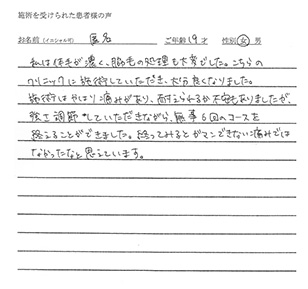 施術を受けられた患者様の声
お名前(イニシャル可) 匿名 ご年齢 19 才 性別 女 男
私は体毛が濃く、脱毛の処理も大変でした。こちらの
クリニックに施術していただき、大分良くなりました。
施術はやはり痛みがあり、耐えられるか不安もありましたが、
強さ調節していただきながら、無事6回のコースを
終えることができました。終ってみるとガマンできない痛みでは
なかったなと思えています。